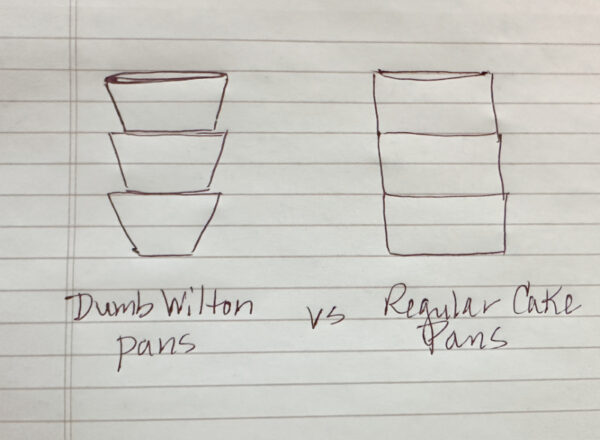 Dumb Wilton
pans
vs
Regular Cake
Pans